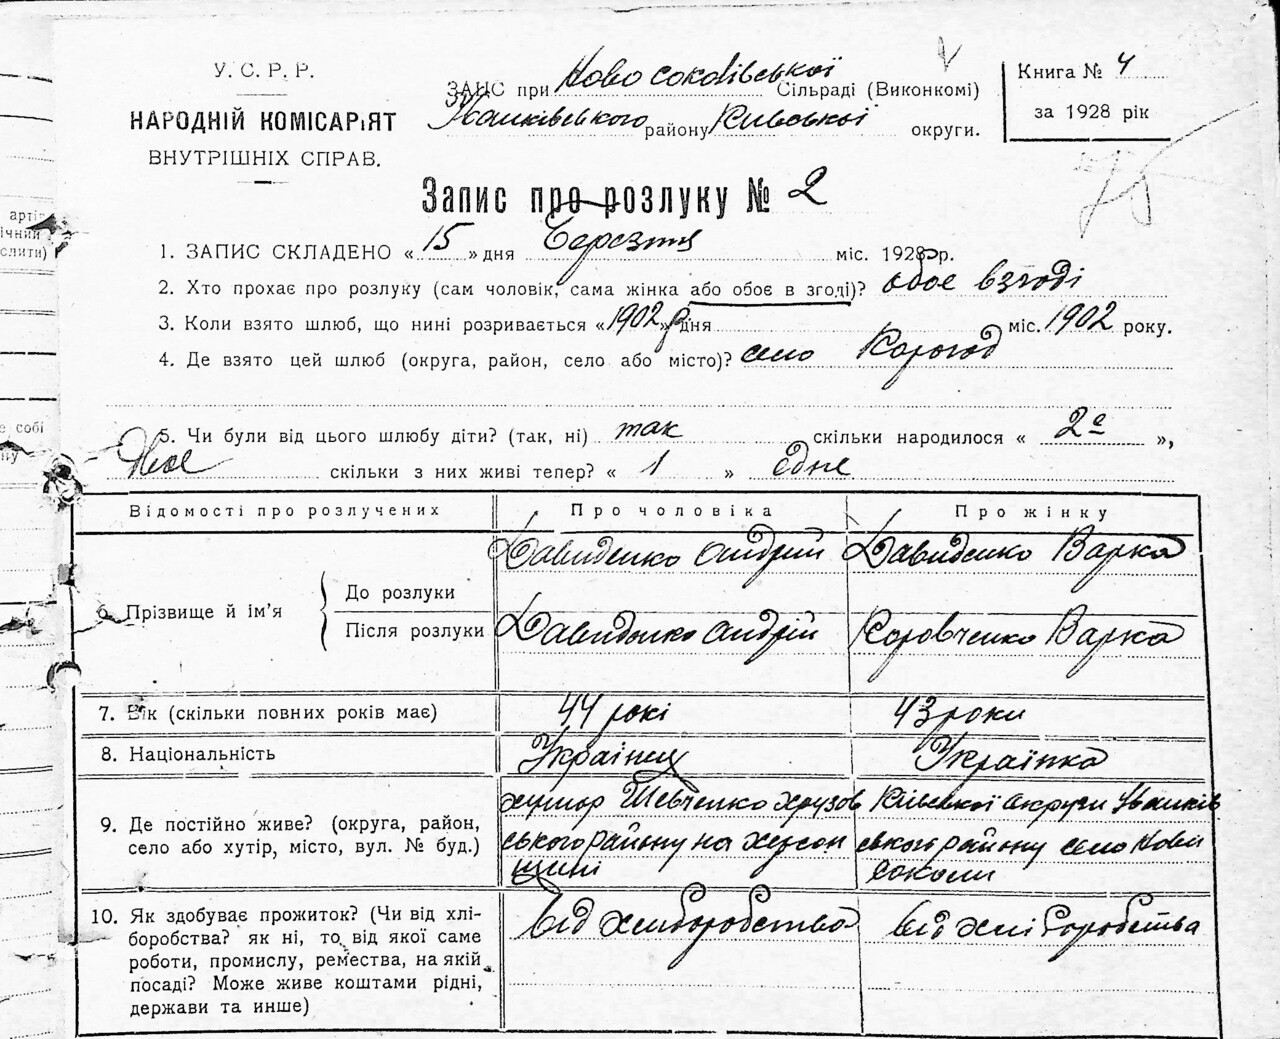 У. С. Р. Р.
НАРОДНІЙ КОМІСАРІЯТ
ВНУТРІШНІХ СПРАВ.
ЗАПИС при Ново соколівської Сільраді (Виконкомі)
Іванківського району Київської округи.
Книга № 4
за 1928 рік
Запис про розлуку № 2
1. ЗАПИС СКЛАДЕНО « 15 » дня Березня міс. 1928 р.
2. Хто прохає про розлуку (сам чоловік, сама жінка або обоє в згоді)? обоє взгоді
3. Коли взято шлюб, що нині розривається «1902 р» дня міс. 1902 року.
4. Де взято цей шлюб (округа, район, село або місто)? село Корогод
5. Чи були від цього шлюбу діти? (так, ні) так скільки народилося « 2є »,
двоє скільки з них живі тепер? « 1 » одне
Відомості про розлучених Про чоловіка Про жінку
6. Прізвище й ім'я
До розлуки Давиденко Андрій Давиденко Варка
Після розлуки Давиденко Андрій Коровченко Варка
7. Вік (скільки повних років має) 44 рокі 43 роки
8. Національність Українец Українка
9. Де постійно живе? (округа, район, село або хутір, місто, вул. № буд.)
хутор Шевченко Хрузов
ського району на Херсон
щині
Київської округи Іванків
ського району село Нові
Соколи
10. Як здобуває прожиток? (Чи від хлі-
боробства? як ні, то від якої саме
роботи, промислу, ремества, на якій
посаді? Може живе коштами рідні,
держави та инше)
від хліборобства
від хліборобства
артіт
ічний
слити)
е собі